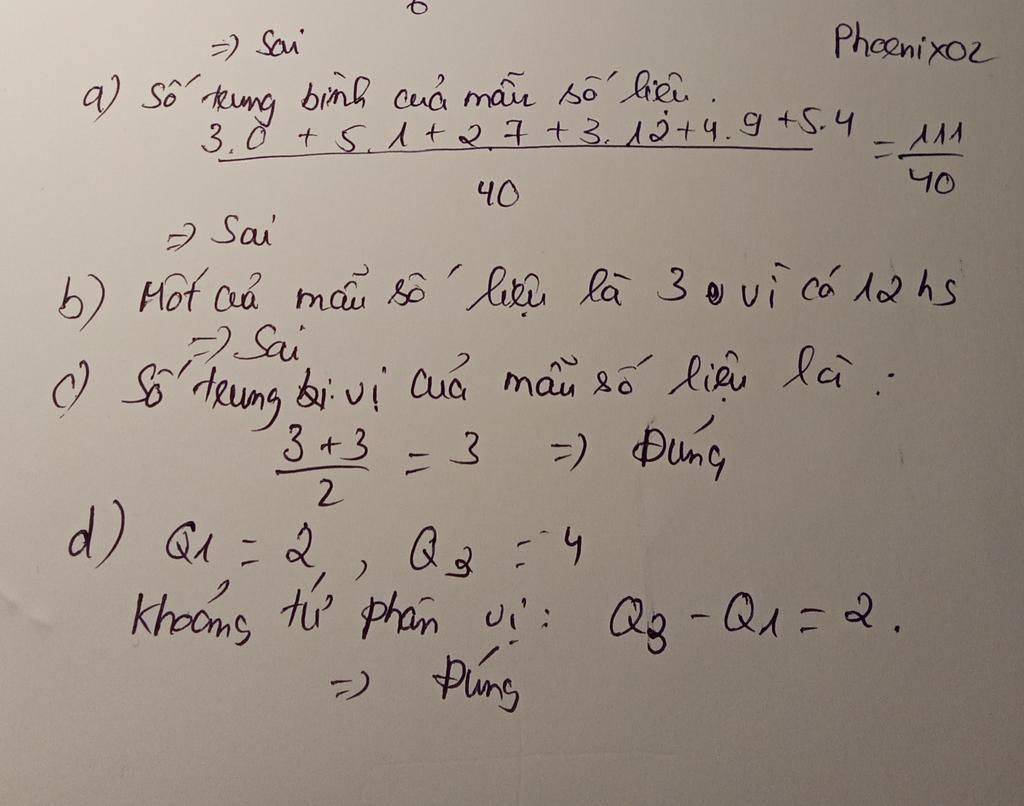 => Sai
Phoenix02
a) Số trung bình của mẫu số liệu.
3.0 + 5.1 + 2.7 + 3.12 + 4.9 + 5.4
= 111
40
40
=> Sai
b) Mốt của mẫu số liệu là 3 vì có 12 hs
=> Sai
c) Số trung vị của mẫu số liệu là :
3 + 3
2
= 3 => Đúng
d) Q1 = 2, Q3 = 4
Khoảng tứ phân vị : Q3 - Q1 = 2.
=> Đúng